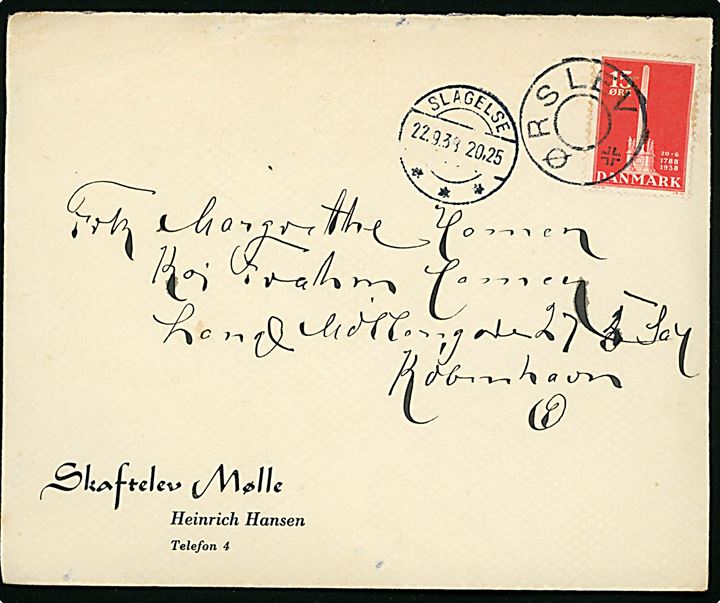 SLAGELSE
22.9.38 20.25
ØRSLEV
15
ØRE
20-6
1788
1938
DANMARK
Frk Margrethe Homen
Kaj Homen
27
København
Ø
Skaftelev Mølle
Heinrich Hansen
Telefon 4